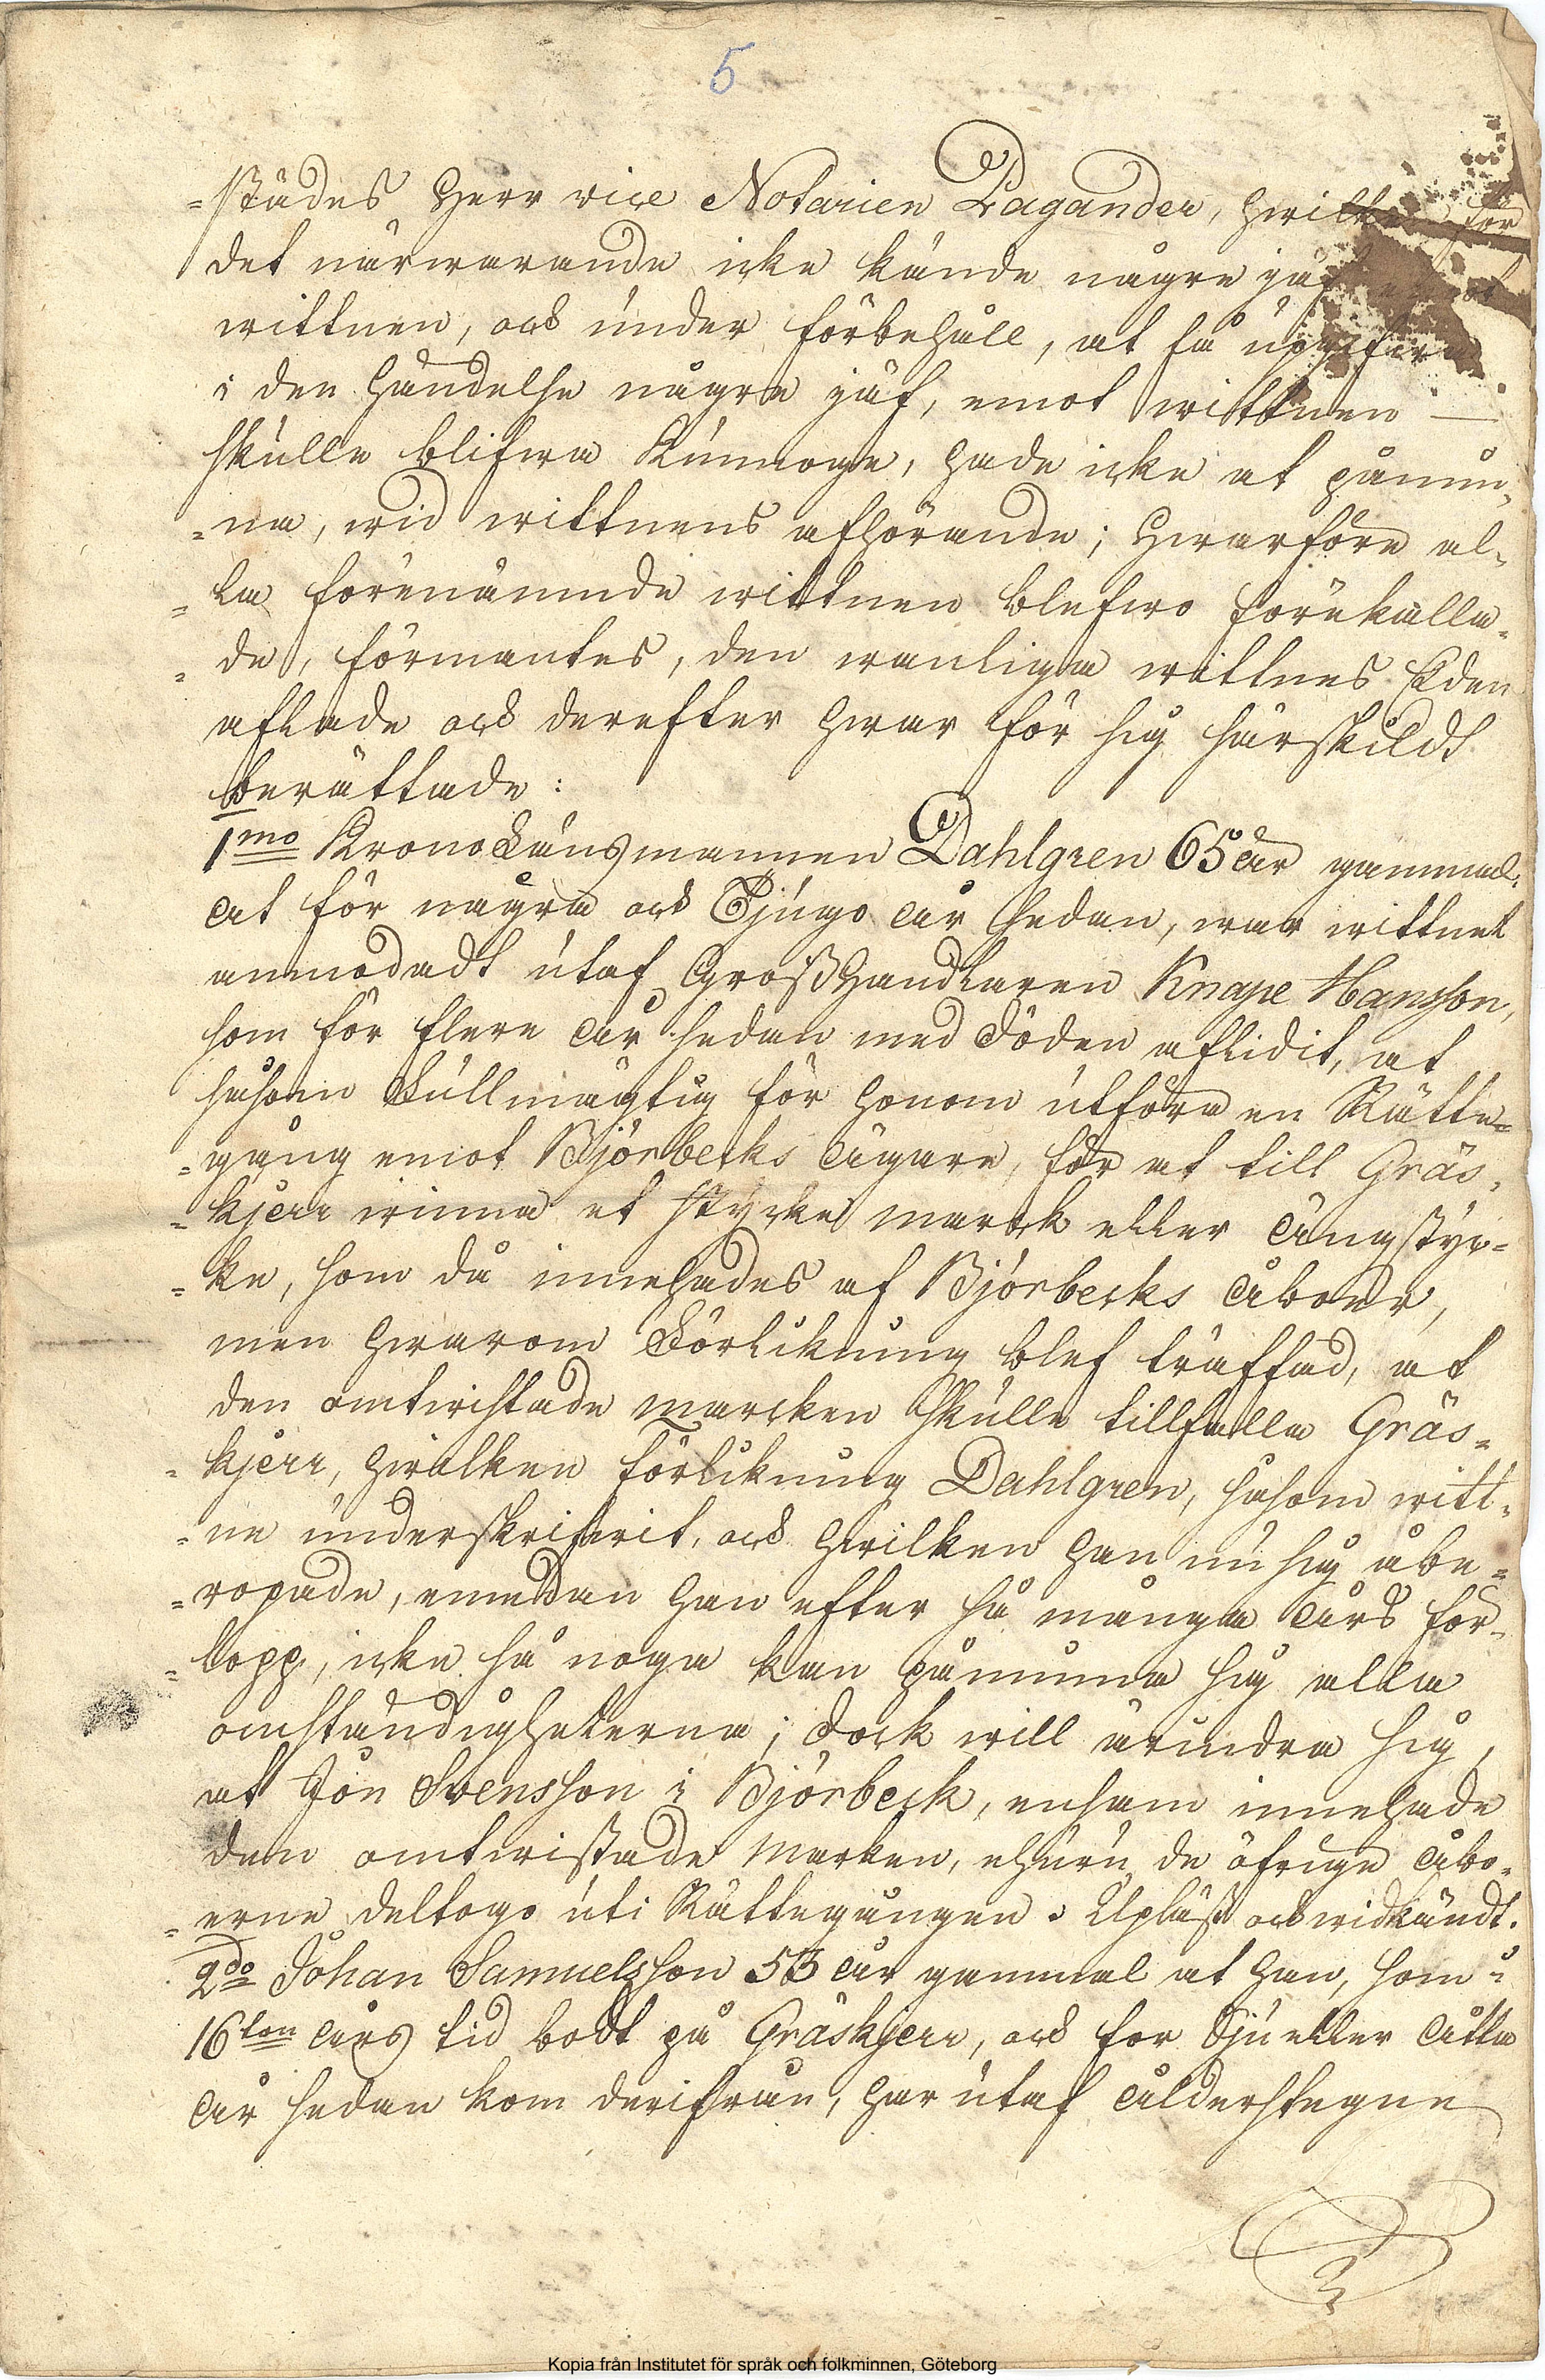 5
=städes Herr vice Notarien Pagander, hwilken för
det närwarande icke kände någre jäf emot
wittnen, och under förbehåll, at få uppgifwa
i den händelse någre jäf, emot wittnen —
skulle blifwa kunnoge, hade icke at påmin=
=na, wid wittnens afhörande; Hwarföre al=
=la förenämnde wittnen blefwo förekalla=
=de, förmantes, den wanliga wittnes Eden
aflade och derefter hwar för sig särskildt
berättade:
1mo KronoLänsmannen Dahlgren 65 år gammal:
at för några och Tjugo år sedan, war wittnet
anmodadt utaf Grosshandlaren Knape Hansson,
som för flere år sedan med döden aflidit, at
såsom Fullmägtig för honom utföra en Rätte=
=gång emot Björbecks Ägare, för at till Gräs=
=kjerr winna et stycke marck eller ängstyc=
=ke, som då innehades af Björbecks åboer,
men hwarom Förlikning blef träffad, at
den omtwistade marcken skulle tillfalla Gräs=
=kjerr, hwilken förlikning Dahlgren, såsom witt=
=ne underskrifwit, och hwilken han nu sig åbe=
=ropade, emedan han efter så många års för=
=lopp, icke så noga kan påminna sig alla
omständigheterna; dock will ärindra sig,
at Jon Svensson i Björbeck, ensam innehade
den omtwistade marken, ehuru de öfrige åbo=
=erne deltogo uti Rättegången. Upläst och widkändt.
2do Johan Samuelsson 53 år gammal at han, som i
16ton års tid bodt på Gräskjerr, och for Sju eller åtta
år sedan kom derifrån, har utaf ålderstegne
Kopia från Institutet för språk och folkminnen, Göteborg